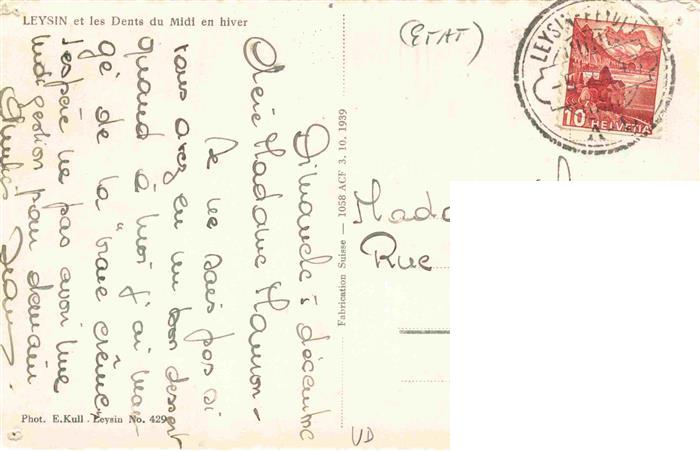 LEYSIN et les Dents du Midi en hiver
(ETAT)
LEYSIN
10 HELVETIA
Dimanche décembre
Chère Madame
Je ne sais pas si
vous avez eu un bon dessert
quand à moi j'ai man-
gé de la vraie crème,
j'espère ne pas avoir une
indigestion pour demain
Fabrication Suisse — 1058 ACF 3. 10. 1939
Rue
Phot. E.Kull. Leysin No. 429
VD